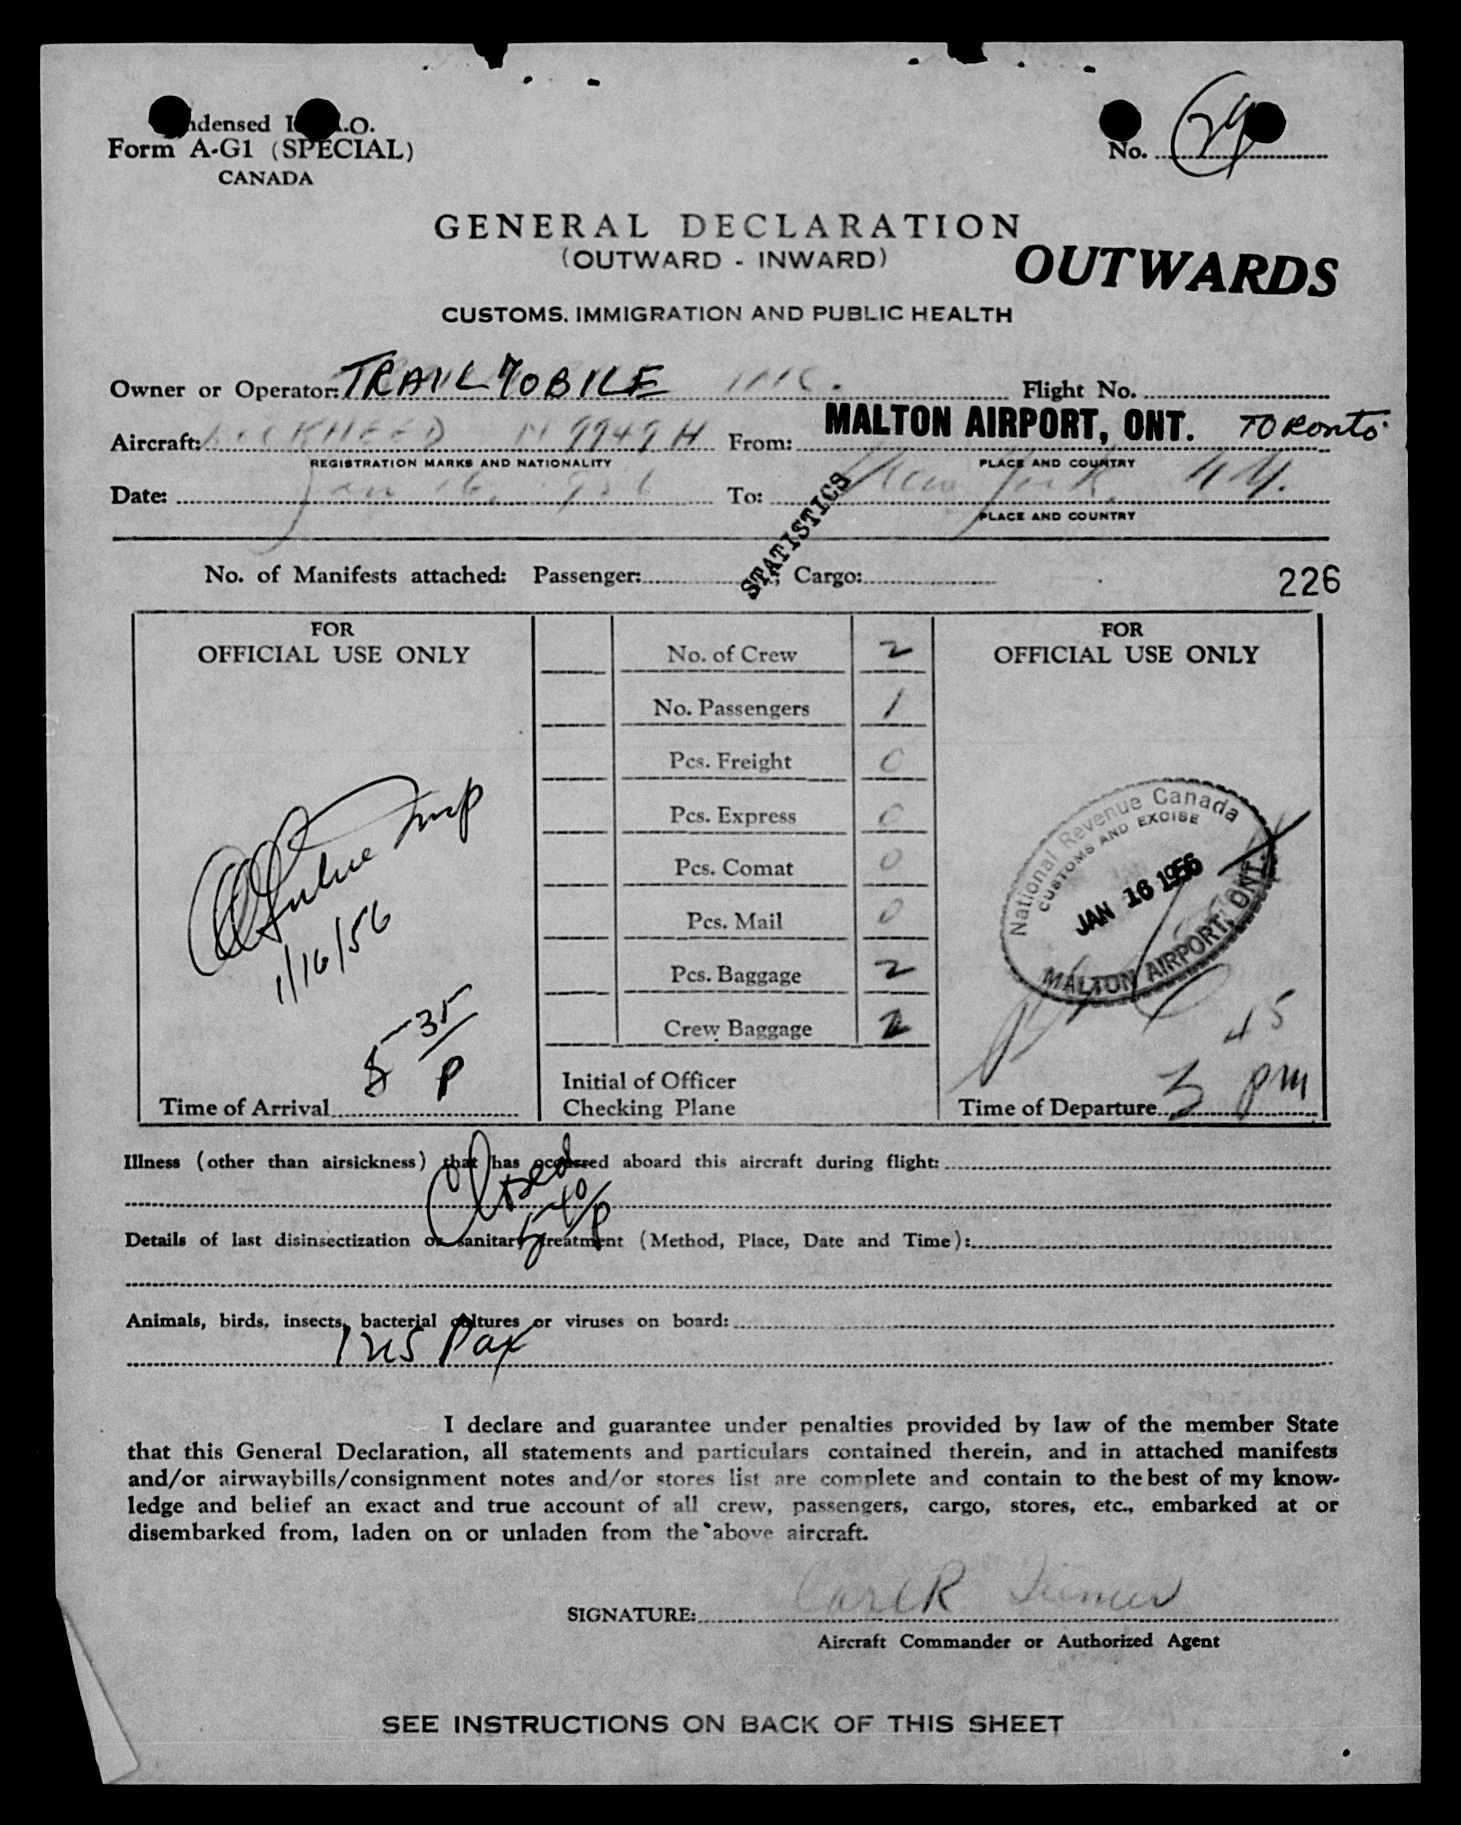 Condensed I.C.A.O.
Form A-G1 (SPECIAL)
CANADA
No. 29
GENERAL DECLARATION
(OUTWARD - INWARD)
OUTWARDS
CUSTOMS, IMMIGRATION AND PUBLIC HEALTH
Owner or Operator: TRAILMOBILE INC. Flight No.
Aircraft: LOCKHEED N 9949 H From: MALTON AIRPORT, ONT. TORONTO
REGISTRATION MARKS AND NATIONALITY PLACE AND COUNTRY
Date: Jan 16, 1956 To: New York, N.Y.
PLACE AND COUNTRY
STATISTICS
No. of Manifests attached: Passenger: ; Cargo:
226
FOR
OFFICIAL USE ONLY
No. of Crew 2
No. Passengers 1
Pcs. Freight 0
Pcs. Express 0
Pcs. Comat 0
Pcs. Mail 0
Pcs. Baggage 2
Crew Baggage 2
Initial of Officer
Checking Plane
FOR
OFFICIAL USE ONLY
National Revenue Canada
CUSTOMS AND EXCISE
JAN 16 1956
MALTON AIRPORT, ONT.
Imp
1/16/56
5 35/P
Time of Arrival
Time of Departure 3 45 pm
Illness (other than airsickness) that has occurred aboard this aircraft during flight:
Closed
5-40/P
Details of last disinsectization or sanitary treatment (Method, Place, Date and Time):
Animals, birds, insects, bacterial cultures or viruses on board:
1 US Pax
I declare and guarantee under penalties provided by law of the member State
that this General Declaration, all statements and particulars contained therein, and in attached manifests
and/or airwaybills/consignment notes and/or stores list are complete and contain to the best of my know-
ledge and belief an exact and true account of all crew, passengers, cargo, stores, etc., embarked at or
disembarked from, laden on or unladen from the above aircraft.
SIGNATURE: Carl R
Aircraft Commander or Authorized Agent
SEE INSTRUCTIONS ON BACK OF THIS SHEET